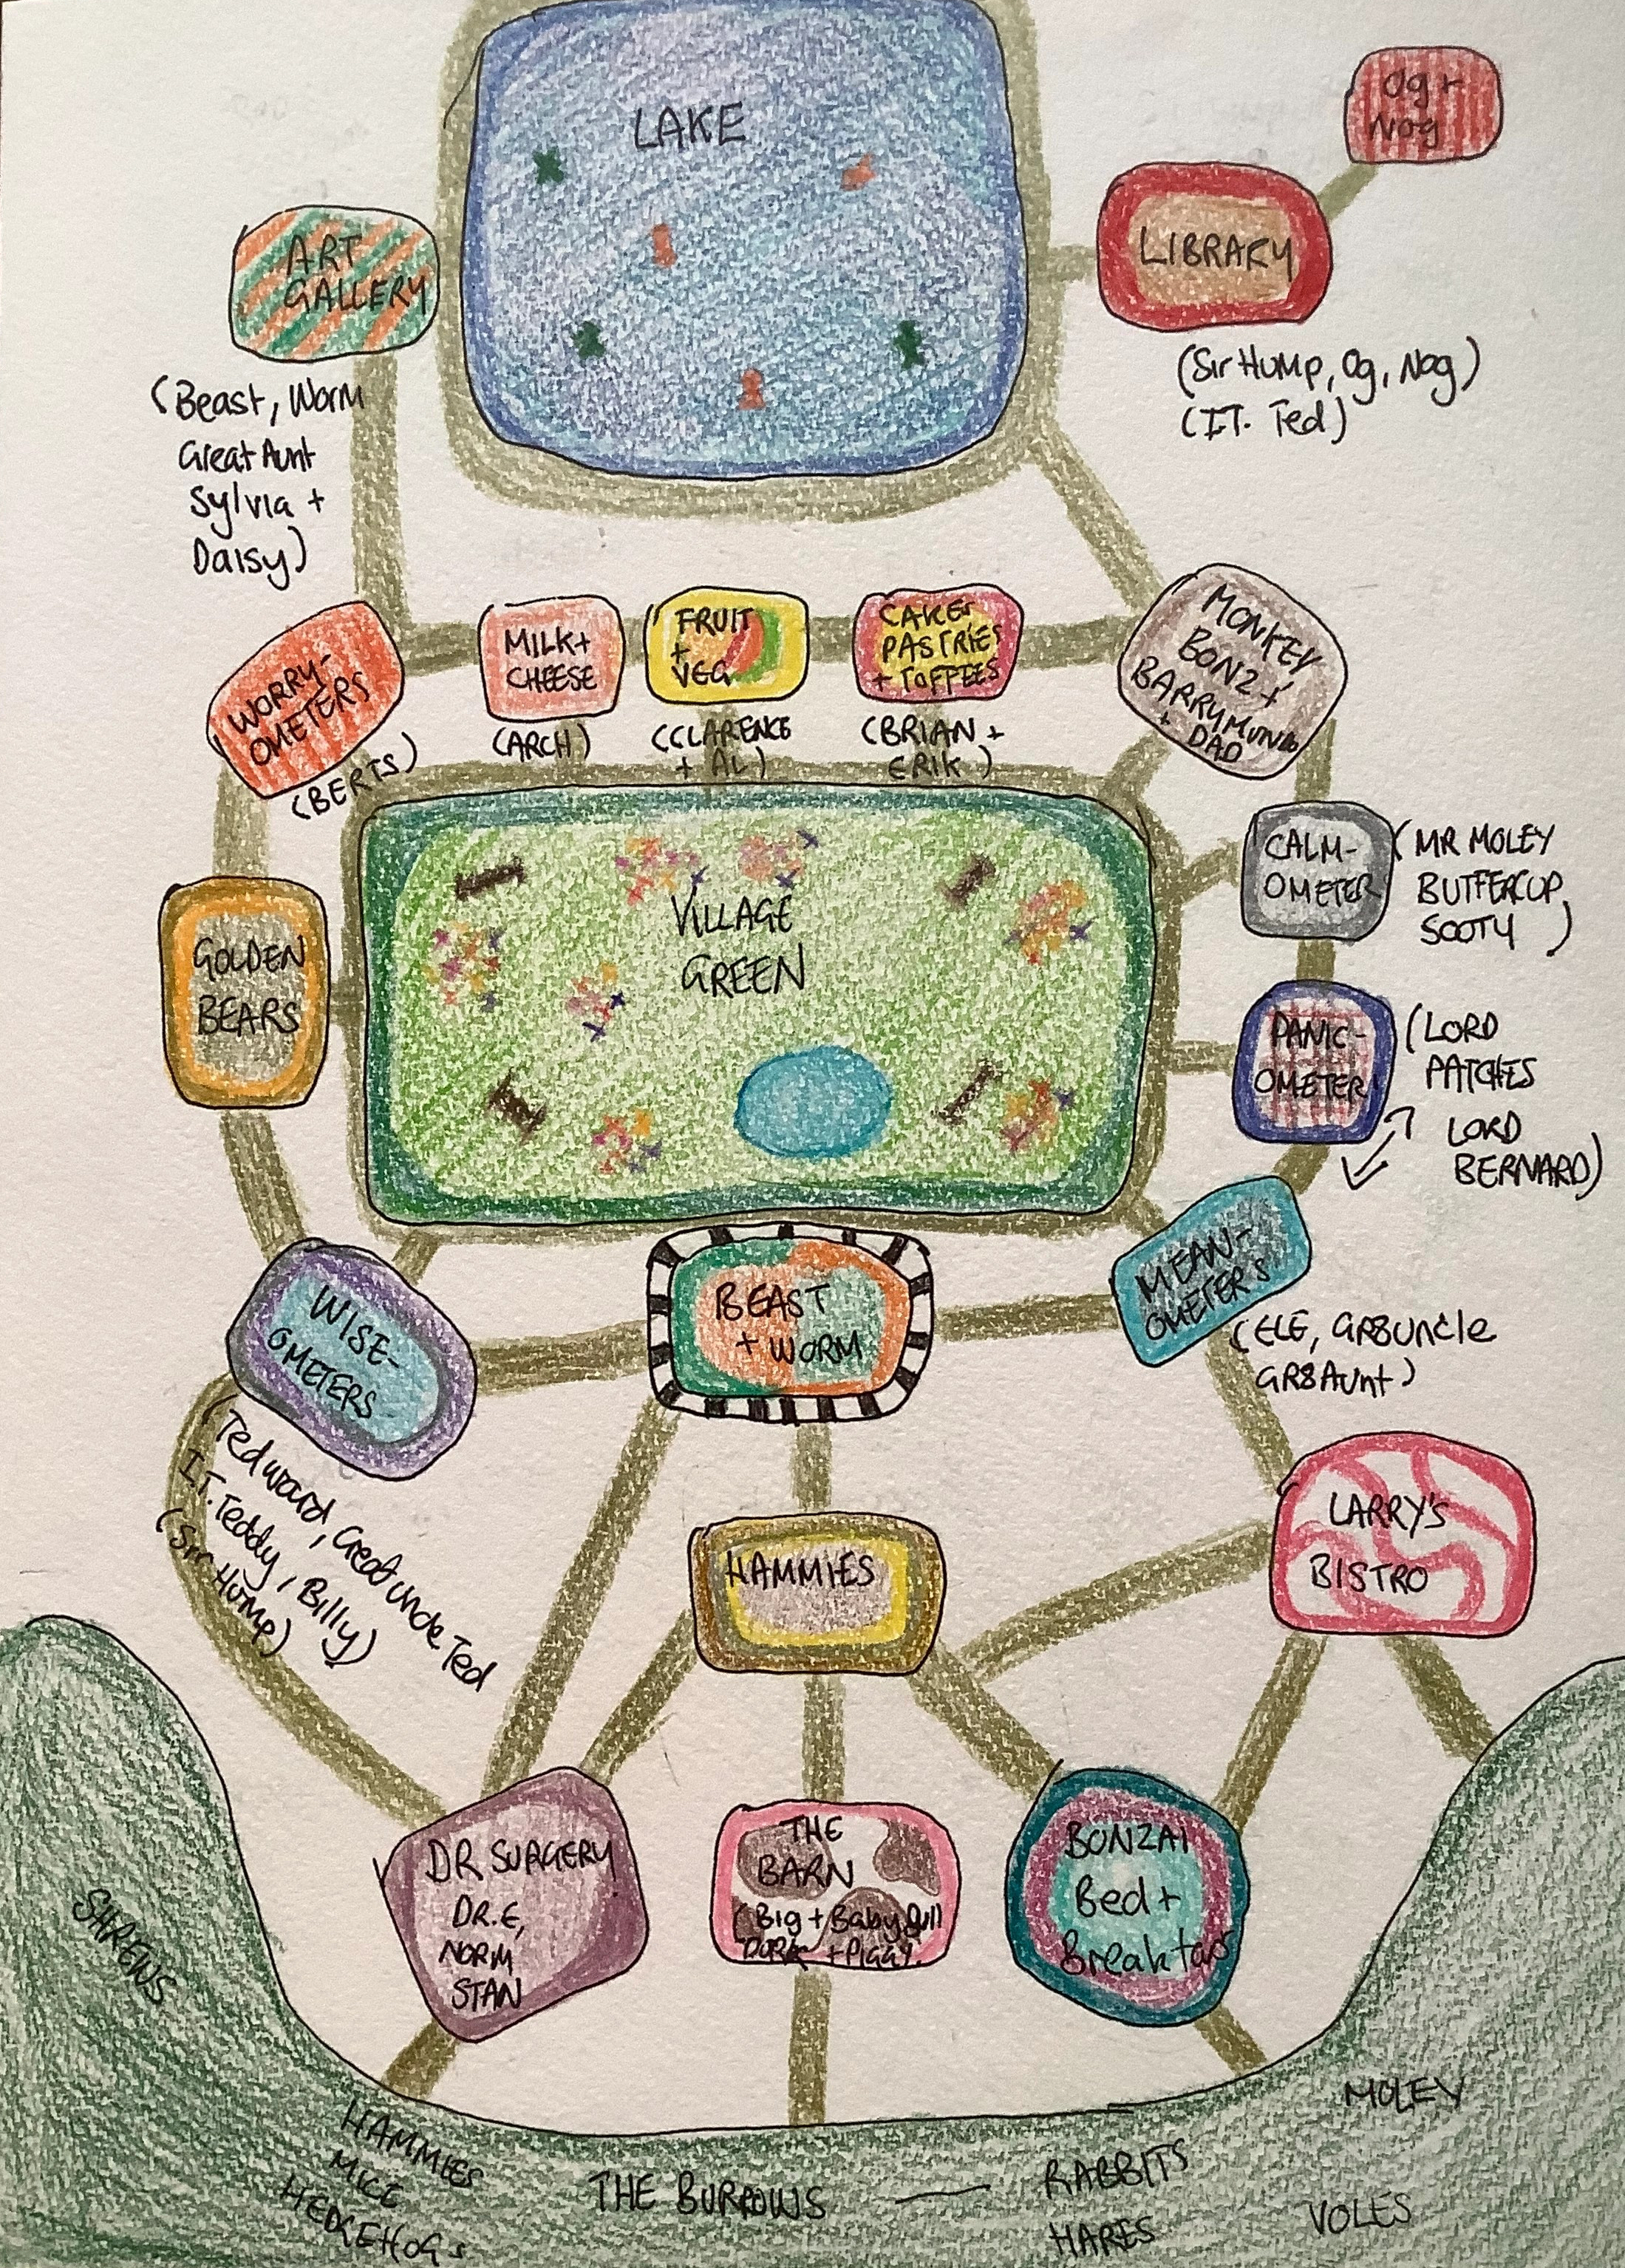 LAKE
Og +
Nog
ART
GALLERY
LIBRARY
(Beast, Worm
Great Aunt
Sylvia +
Daisy)
(Sir Hump, Og, Nog)
(I.T. Ted)
WORRY-
OMETERS
(BERTS)
MILK +
CHEESE
(ARCH)
FRUIT
+
VEG
(CLARENCE
+ AL)
CAKES
PASTRIES
+ TOFFEES
(BRIAN +
ERIK)
MONKEY
BONZ +
BARRYMUNDO
+ DAD
VILLAGE
GREEN
GOLDEN
BEARS
CALM-
OMETER
(MR MOLEY
BUTTERCUP,
SOOTY)
PANIC-
OMETER
(LORD
PATCHES
LORD
BERNARD)
WISE-
OMETERS
(Tedward, Great uncle Ted
I.T. Teddy, Billy)
(Sir Hump)
BEAST
+ WORM
MEAN-
OMETERS
(ELE, GR8Uncle
GR8Aunt)
HAMMIES
LARRY'S
BISTRO
DR SURGERY
DR.E,
NORM
STAN
THE
BARN
(Big + Baby Bull
PORK + PIGGY.
BONZAI
Bed +
Breakfast
SHREWS
HAMMIES
MICE
HEDGEHOGS
THE BURROWS —
RABBITS
HARES
MOLEY
VOLES